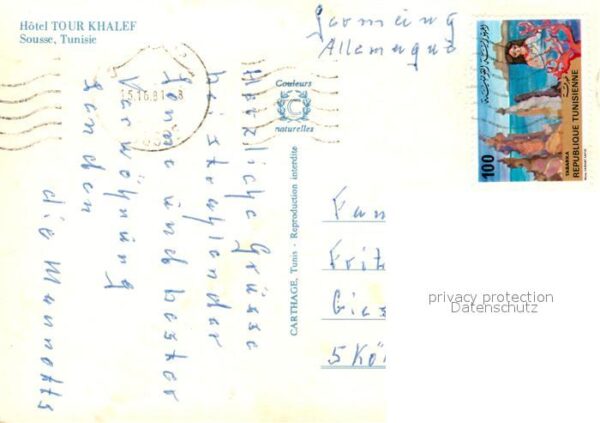 Hôtel TOUR KHALEF
Sousse, Tunisie
Germany
Allemagne
15.10.81
Couleurs
C
naturelles
Herzliche Grüsse
bei strahlender
Sonne und bester
Verwöhnung
senden
die Mannotts
CARTHAGE, Tunis - Reproduction interdite
Fam
Fritz
Gies
5 Kö
الجمهورية التونسية
REPUBLIQUE TUNISIENNE
TABARKA
100
privacy protection
Datenschutz